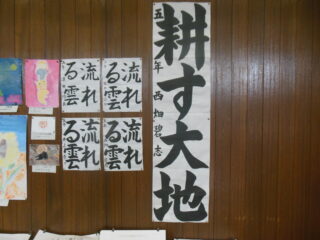 耕す大地
五年 西畑碧志
流れ
る雲
流れ
る雲
流れ
る雲
流れ
る雲